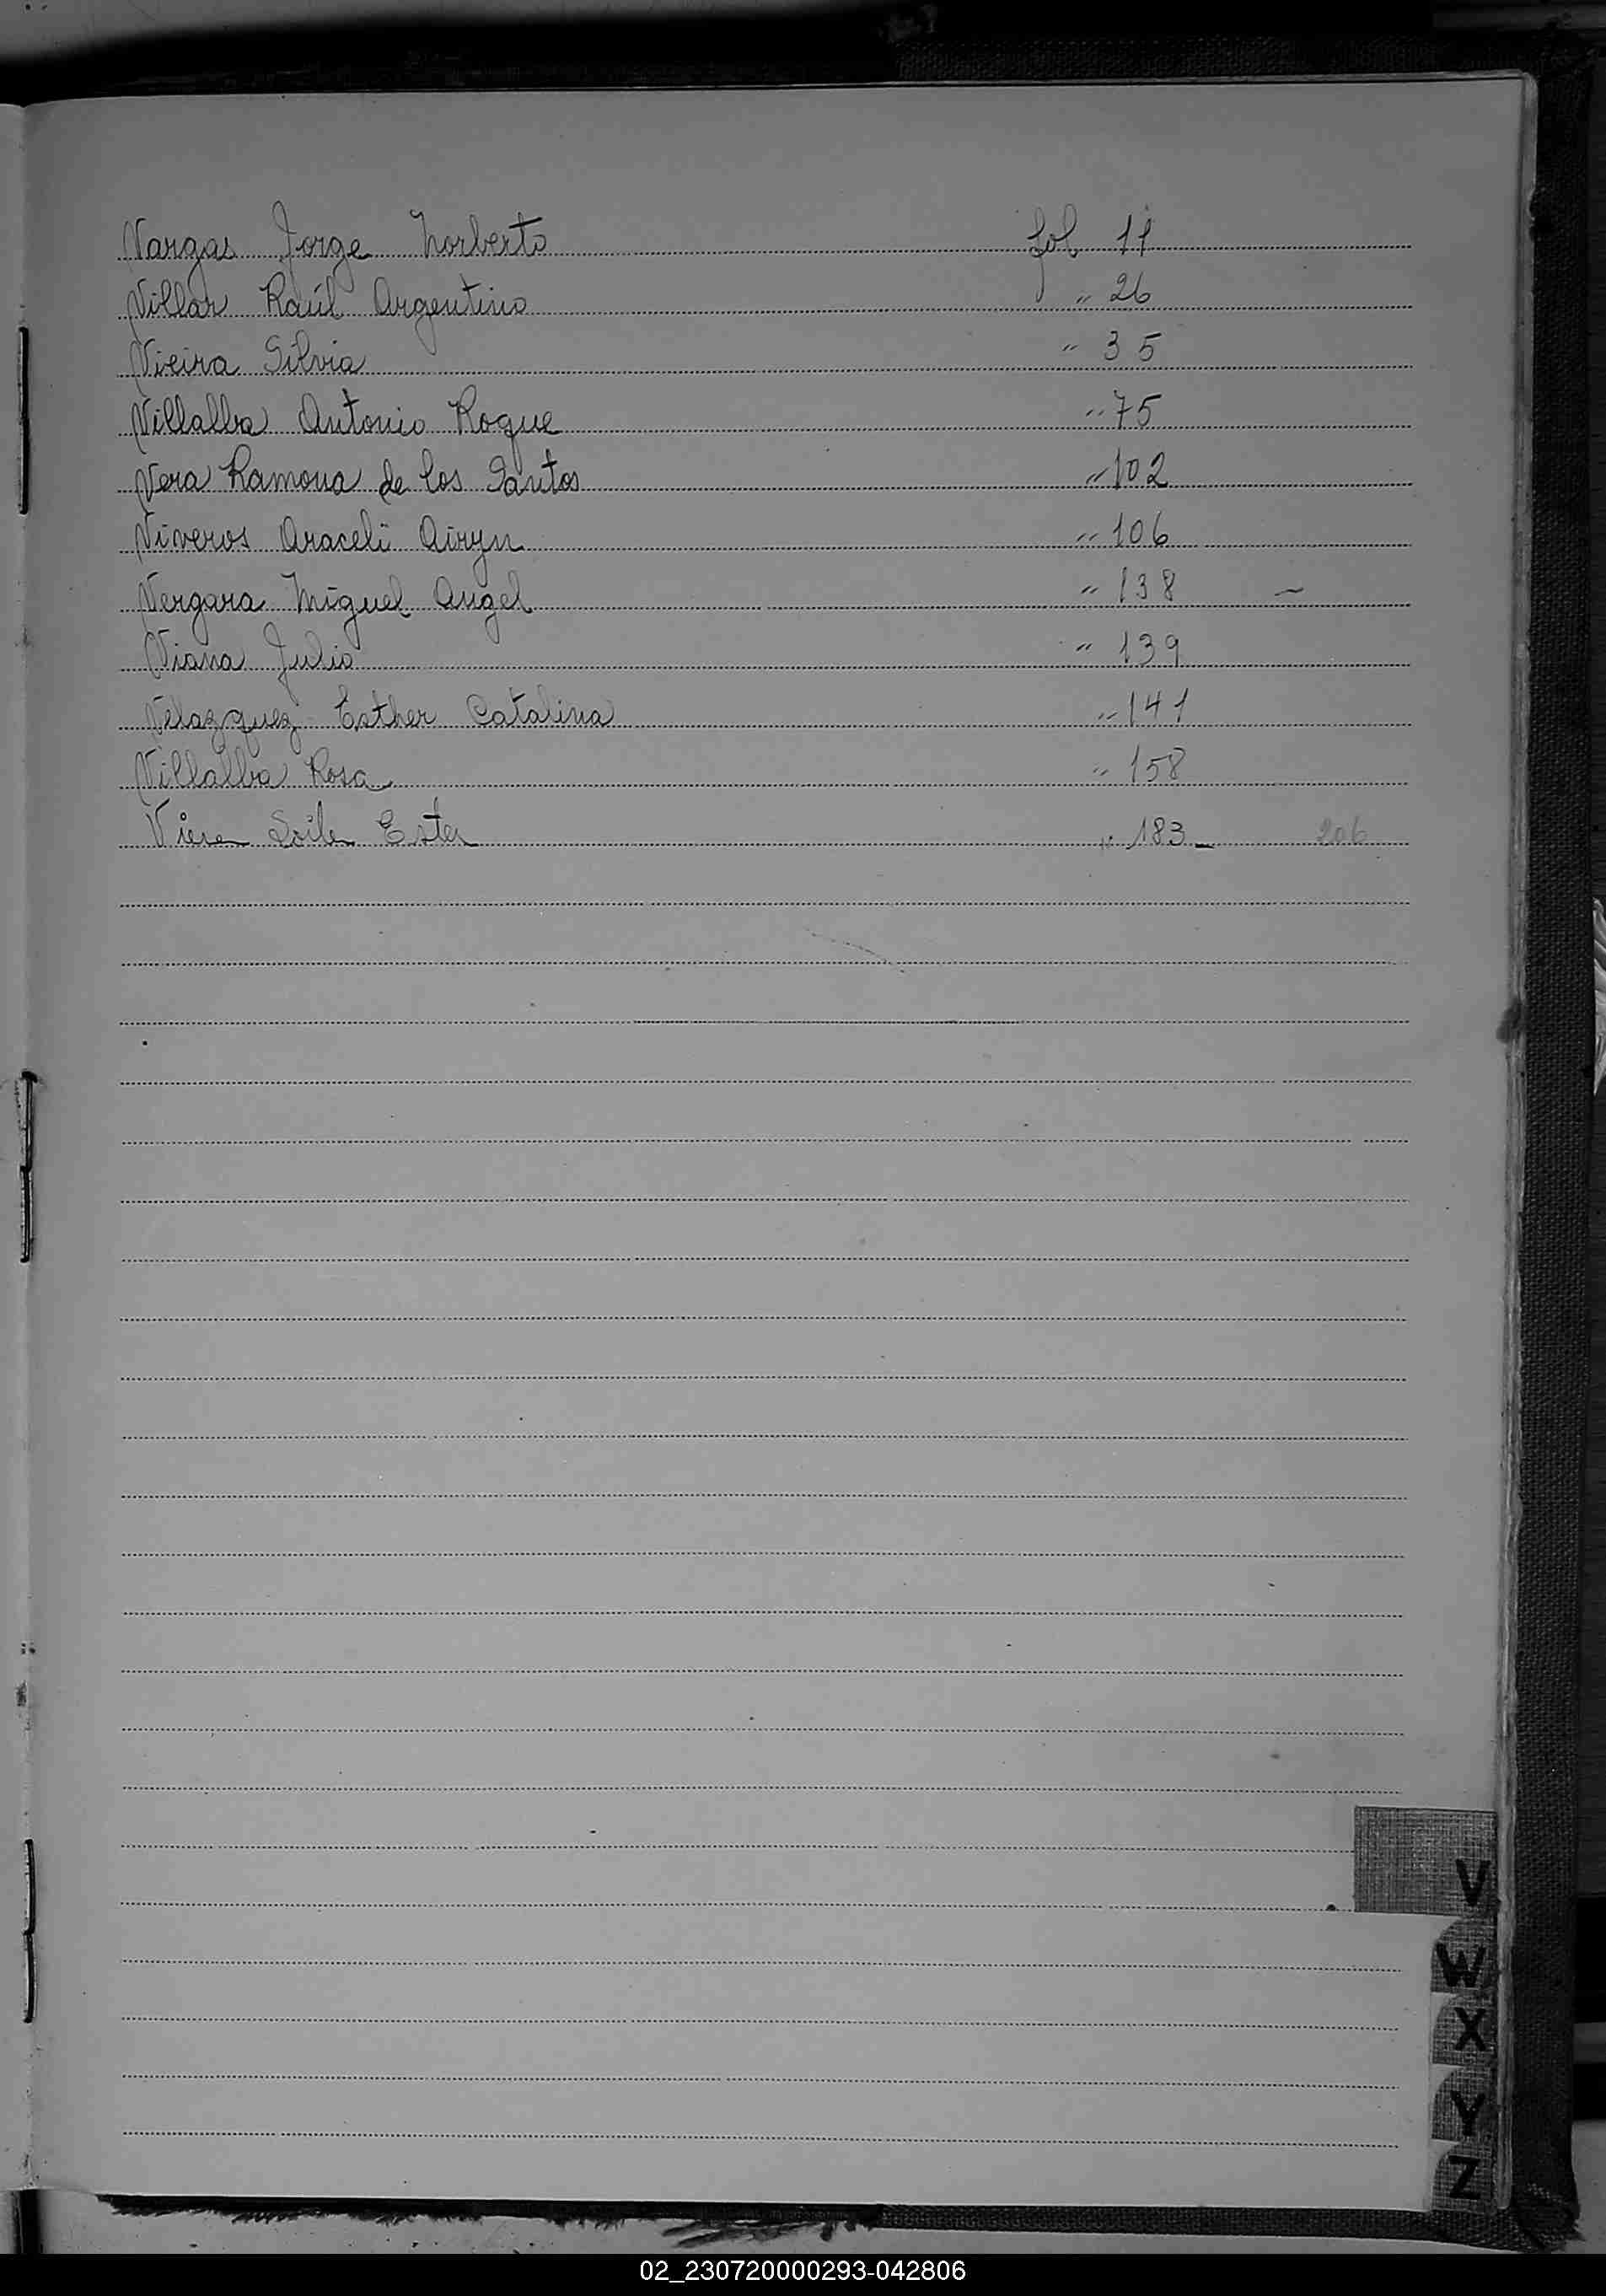 Vargas Jorge Norberto fol 11
Villar Raúl Argentino " 26
Vieira Silvia " 35
Villalba Antonio Roque " 75
Vera Ramona de los Santos " 102
Viveros Araceli Airyn " 106
Vergara Miguel Angel " 138 –
Viana Julio " 139
Velazquez Esther Catalina " 141
Villalba Rosa " 158
Viera Ester " 183 – 206
V
W
X
Y
Z
02_230720000293-042806